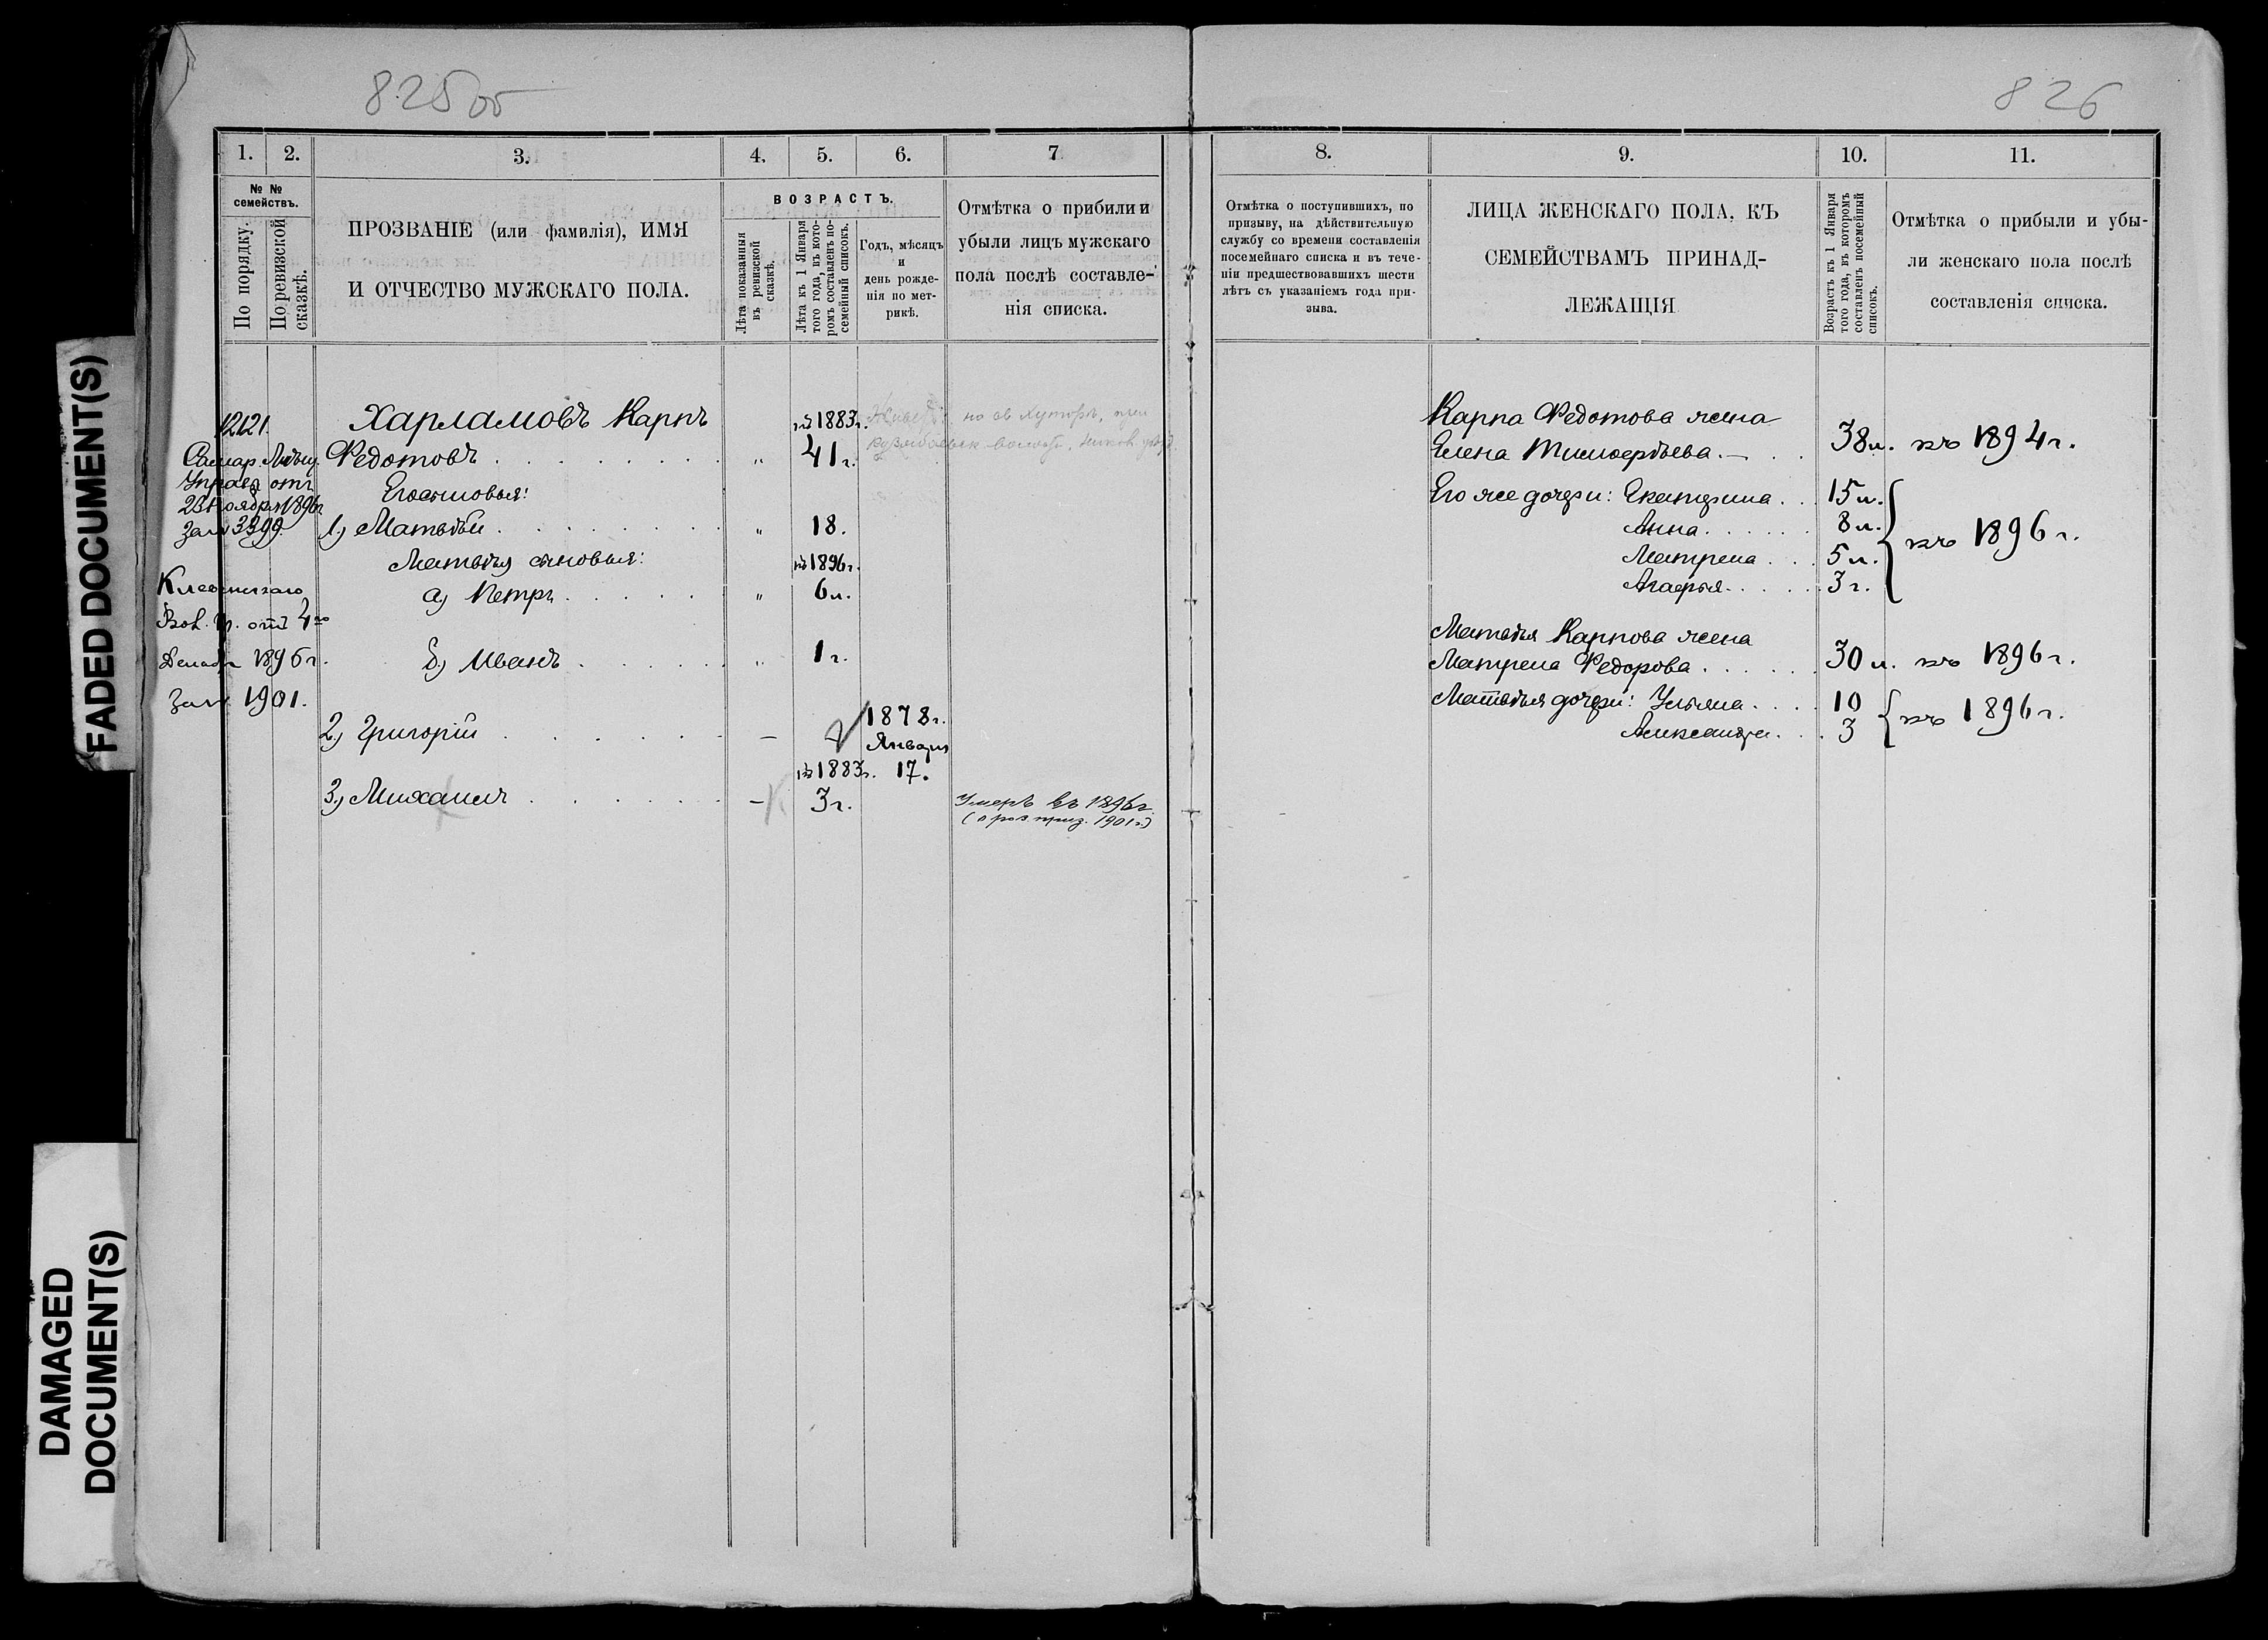 825об
826
1. 2. 3. 4. 5. 6. 7
№ № семействъ.
По порядку.
По ревизской сказкѣ.
ПРОЗВАНІЕ (или фамилія), ИМЯ
И ОТЧЕСТВО МУЖСКАГО ПОЛА.
ВОЗРАСТЪ.
Лѣта показанныя въ ревизской сказкѣ.
Лѣта къ 1 Января того года, въ кото-ромъ составленъ по-семейный списокъ.
Годъ, мѣсяцъ
и
день рожде-
нія по мет-
рикѣ.
Отмѣтка о прибыли и
убыли лицъ мужскаго
пола послѣ составле-
нія списка.
12121.
Самар. Мѣщ.
Управы отъ
23 Ноября 1896г
за № 3399.
Вол. П. отъ 4го
Декабр 1896г.
за № 1901.
Харламовъ Карпъ
къ 1883г.
Федотовъ „ 41г.
Его сыновья:
1) Матвѣй „ 18.
Матвѣя сыновья: къ 1896г.
а) Петръ „ 6л.
б) Иванъ „ 1г.
2) Григорій — 1878г.
Января
17.
къ 1883г.
3) Михаилъ — 3г. Умеръ въ 1896г.
8. 9. 10. 11.
Отмѣтка о поступившихъ, по
призыву, на дѣйствительную
службу со времени составленія
посемейнаго списка и въ тече-
ніи предшествовавшихъ шести
лѣтъ съ указаніемъ года при-
зыва.
ЛИЦА ЖЕНСКАГО ПОЛА, КЪ
СЕМЕЙСТВАМЪ ПРИНАД-
ЛЕЖАЩІЯ
Возрастъ къ 1 Января того года, въ которомъ составленъ посемейный списокъ.
Отмѣтка о прибыли и убы-
ли женскаго пола послѣ
составленія списка.
Карпа Федотова жена
Елена Тимофѣева.— 38л. къ 1894г.
Его же дочери: Екатерина 15л.
Анна 8л.
къ 1896г.
Матрена 5л.
Агафья 3г.
Матвѣя Карпова жена
Матрена Федорова 30л. къ 1896г.
Матвѣя дочери: Ульяна 10
къ 1896г.
Александра 3
FADED DOCUMENT(S)
DAMAGED
DOCUMENT(S)